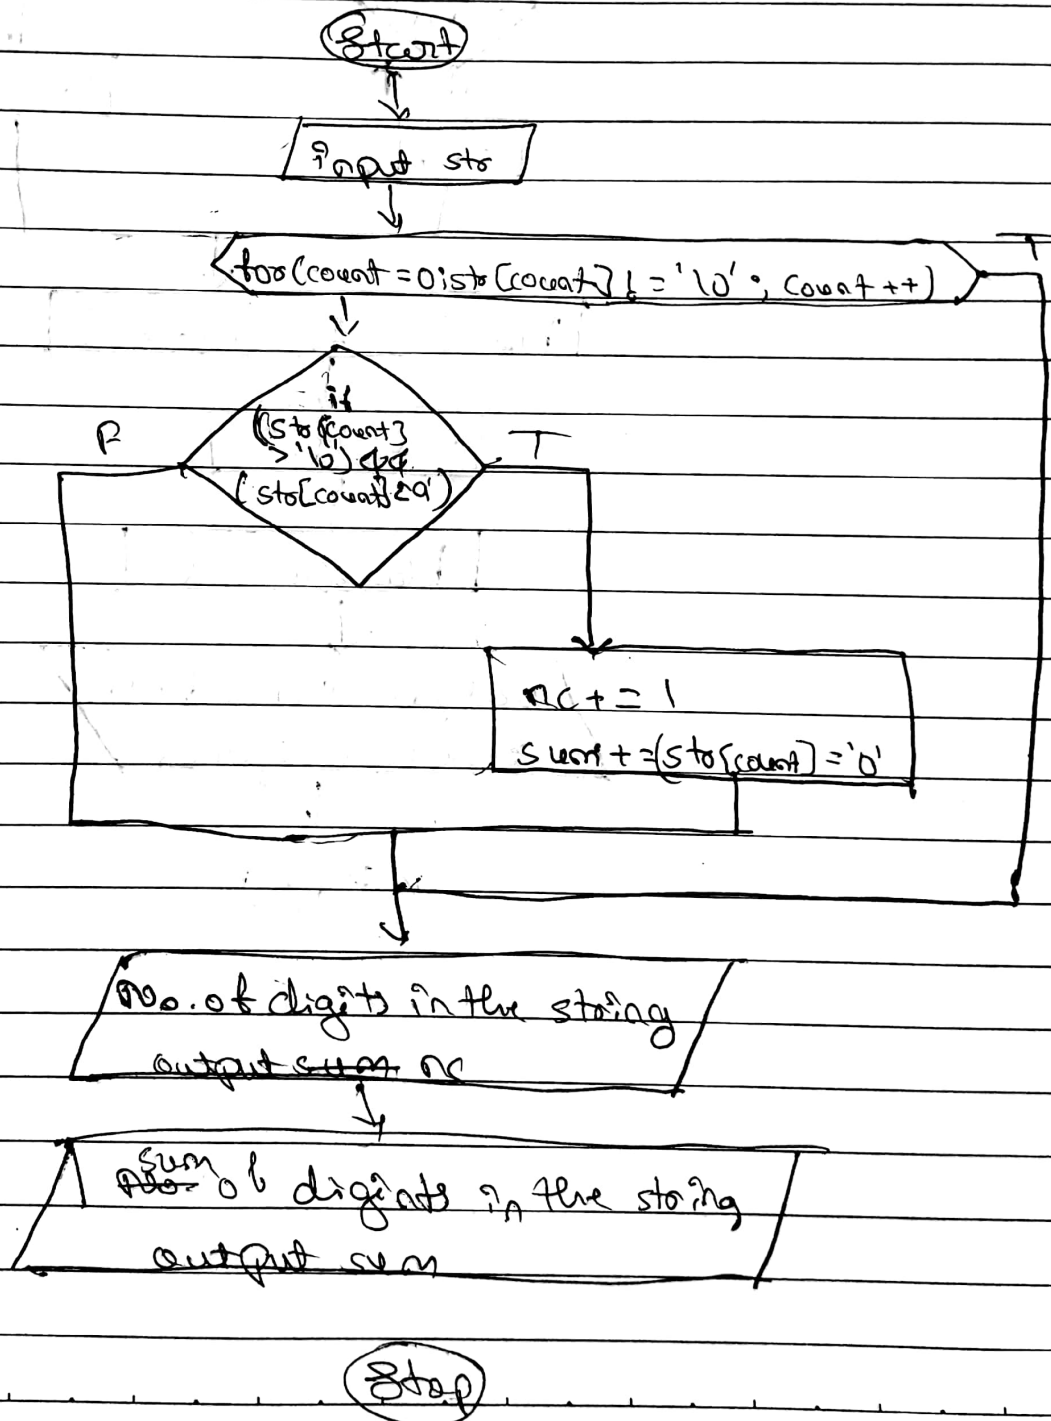 Start
input str
for(count=0;str[count]!='\0'; count++)
T
if
(str[count]
>'\0')&&
(str[count]<9')
F
T
nc+=1
sum+=(str[count]='0'
No. of digits in the string
output sum nc
sum
No. of digints in the string
output sum
Stop